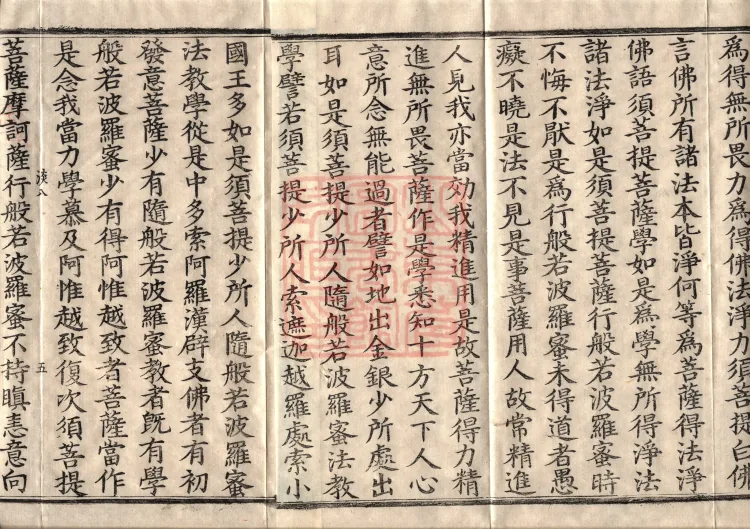 為得無所畏力為得佛法淨力須菩提白佛
言佛所有諸法本皆淨何等為菩薩得法淨
佛語須菩提菩薩學如是為學無所得淨法
諸法淨如是須菩提菩薩行般若波羅蜜時
不悔不厭是為行般若波羅蜜未得道者愚
癡不曉是法不見是事菩薩用人故常精進
人見我亦當効我精進用是故菩薩得力精
進無所畏菩薩作是學悉知十方天下人心
意所念無能過者譬如地出金銀少所處出
耳如是須菩提少所人隨般若波羅蜜法教
學譬若須菩提少所人索遮迦越羅處索小
國王多如是須菩提少所人隨般若波羅蜜
法教學從是中多索阿羅漢辟支佛者有初
發意菩薩少有隨般若波羅蜜教者既有學
般若波羅蜜少有得阿惟越致者菩薩當作
是念我當力學慕及阿惟越致復次須菩提
淡八 五
菩薩摩訶薩行般若波羅蜜不持瞋恚意向